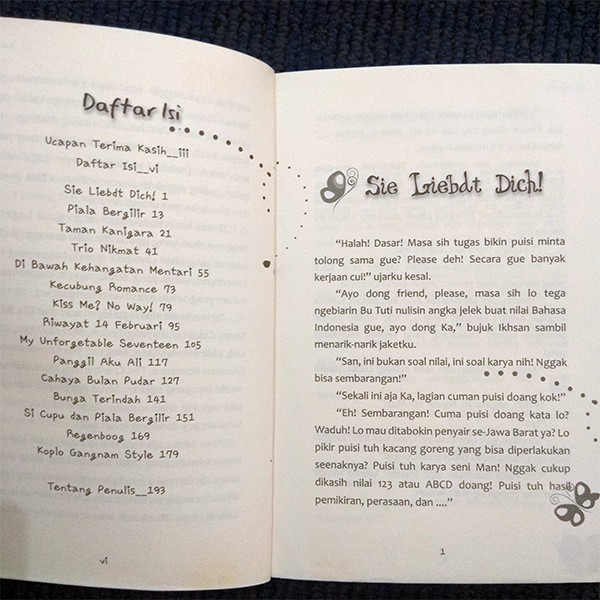 Daftar Isi
Ucapan Terima Kasih__iii
Daftar Isi__vi
Sie Liebdt Dich! 1
Piala Bergilir 13
Taman Kanigara 21
Trio Nikmat 41
Di Bawah Kehangatan Mentari 55
Kecubung Romance 73
Kiss Me? No Way! 79
Riwayat 14 Februari 95
My Unforgetable Seventeen 105
Panggil Aku Ali 117
Cahaya Bulan Pudar 127
Bunga Terindah 141
Si Cupu dan Piala Bergilir 151
Regenboog 169
Koplo Gangnam Style 179
Tentang Penulis__193
vi
Sie Liebdt Dich!
“Halah! Dasar! Masa sih tugas bikin puisi minta
tolong sama gue? Please deh! Secara gue banyak
kerjaan cui!” ujarku kesal.
“Ayo dong friend, please, masa sih lo tega
ngebiarin Bu Tuti nulisin angka jelek buat nilai Bahasa
Indonesia gue, ayo dong Ka,” bujuk Ikhsan sambil
menarik-narik jaketku.
“San, ini bukan soal nilai, ini soal karya nih! Nggak
bisa sembarangan!”
“Sekali ini aja Ka, lagian cuman puisi doang kok!”
“Eh! Sembarangan! Cuma puisi doang kata lo?
Waduh! Lo mau ditabokin penyair se-Jawa Barat ya? Lo
pikir puisi tuh kacang goreng yang bisa diperlakukan
seenaknya? Puisi tuh karya seni Man! Nggak cukup
dikasih nilai 123 atau ABCD doang! Puisi tuh hasil
pemikiran, perasaan, dan ....”
1